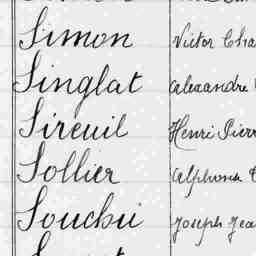 Simon Victor Cha
Singlat alexandre
Sireuil Henri Pierr
Sollier Alphonse
Souchu Joseph Jea